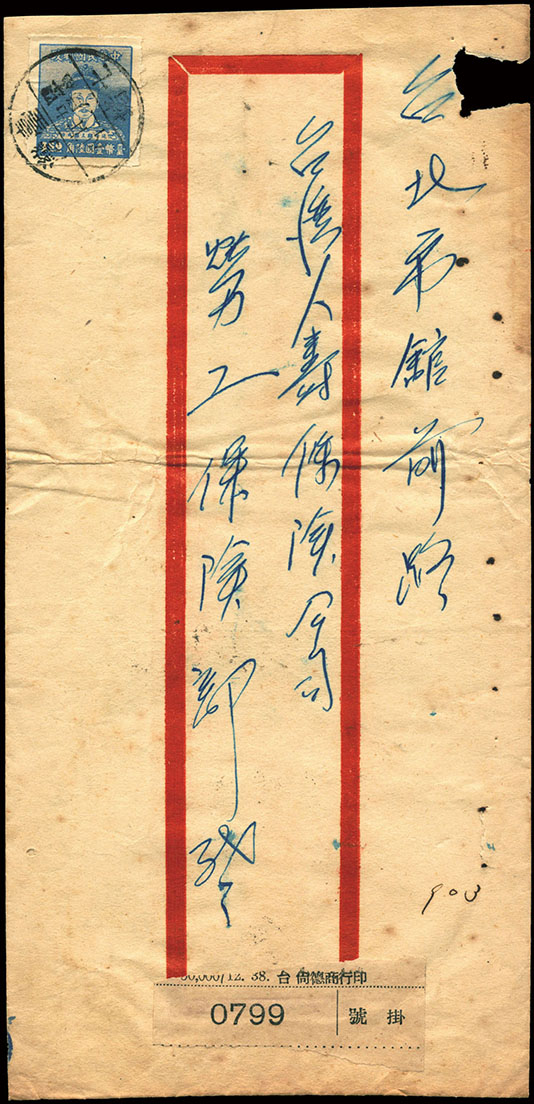 台北市館前路
台湾人壽保險公司
勞工保険部啓
903
50,000/12. 38. 台 尙德商行印
0799
掛號